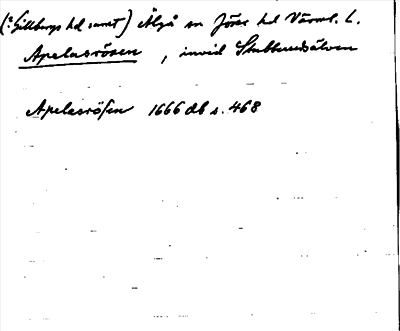 (: Gillbergs hd samt) Älgå sn Jösse hd Värml. L.
Apelasrösen, invid Stubbendsälven
Apelesrösen 1666 db s. 468